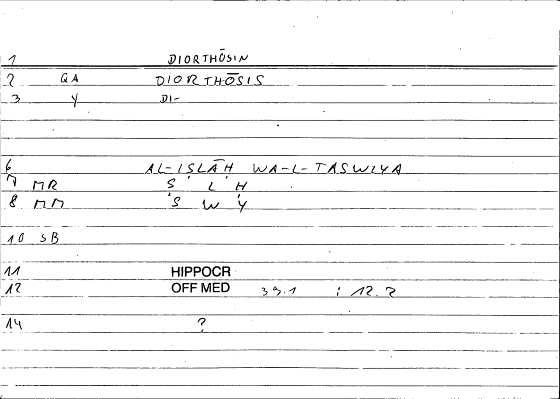 1 DIORTHŌSIN
2 GA DIORTHŌSIS
3 Y DI-
6 AL-IṢLĀḤ WA-L-TASWIYA
7 MR Ṣ L Ḥ
8 MM S W Y
10 SB
11 HIPPOCR
12 OFF MED 39.1 ; 12.2
14 ?